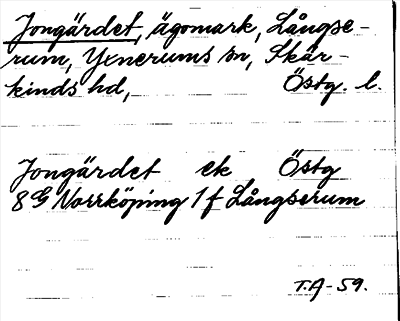 Jongärdet, ägomark, Långse-
rum, Yxnerums sn, Skär-
kinds hd, Östg. l.
Jongärdet ek Östg
8G Norrköping 1f Långserum
T.A-59.